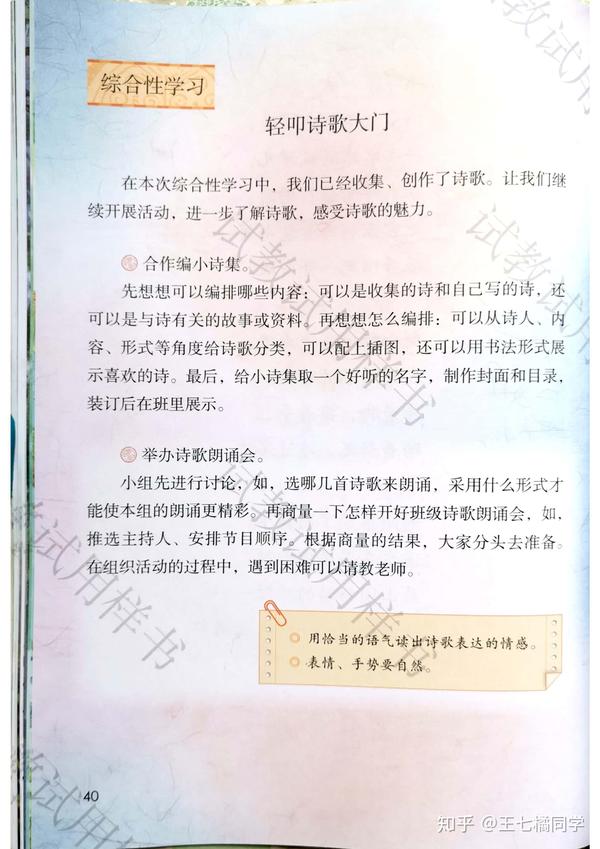 综合性学习
轻叩诗歌大门
在本次综合性学习中，我们已经收集、创作了诗歌。让我们继
续开展活动，进一步了解诗歌，感受诗歌的魅力。
合作编小诗集。
先想想可以编排哪些内容：可以是收集的诗和自己写的诗，还
可以是与诗有关的故事或资料。再想想怎么编排：可以从诗人、内
容、形式等角度给诗歌分类，可以配上插图，还可以用书法形式展
示喜欢的诗。最后，给小诗集取一个好听的名字，制作封面和目录，
装订后在班里展示。
举办诗歌朗诵会。
小组先进行讨论，如，选哪几首诗歌来朗诵，采用什么形式才
能使本组的朗诵更精彩。再商量一下怎样开好班级诗歌朗诵会，如，
推选主持人、安排节目顺序。根据商量的结果，大家分头去准备。
在组织活动的过程中，遇到困难可以请教老师。
用恰当的语气读出诗歌表达的情感。
表情、手势要自然。
40
试教试用样书
试教试用样书
试教试用样书
试教试用样书
知乎 @王七橘同学